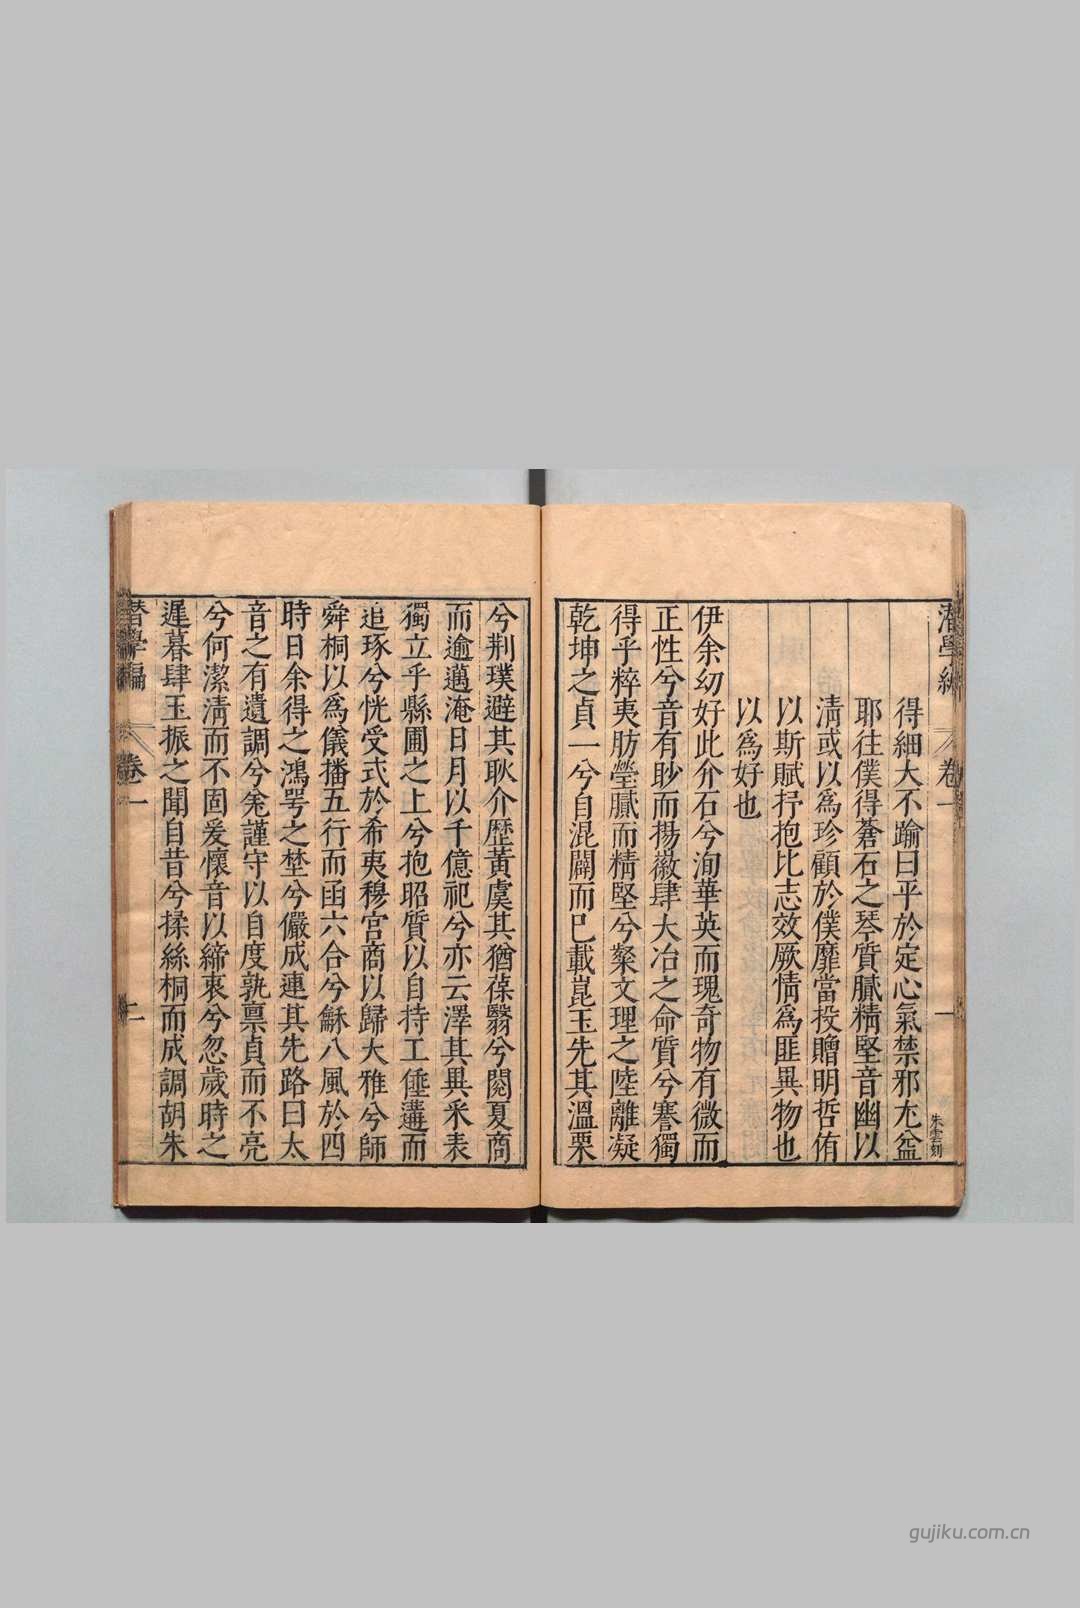 潛學編
卷一
一
朱雲刻
得細大不踰曰平於定心氣禁邪充益
耶往僕得蒼石之琴質膩精堅音幽以
清或以爲珍顧於僕靡當投贈明哲侑
以斯賦抒抱比志效厥情爲匪異物也
以爲好也
伊余幼好此介石兮洵華英而瑰奇物有微而
正性兮音有眇而揚徽肆大冶之命質兮謇獨
得乎粹夷肪瑩膩而精堅兮粲文理之陸離凝
乾坤之貞一兮自混闢而巳載崑玉先其溫栗
兮荆璞避其耿介歷黃虞其猶葆翳兮閱夏商
而逾邁淹日月以千億祀兮亦云澤其異釆表
獨立乎縣圃之上兮抱昭質以自持工倕遘而
追琢兮恍受式於希夷穆宮商以歸大雅兮師
舜桐以爲儀播五行而函六合兮龢八風於四
時日余得之鴻咢之埜兮儼成連其先路曰太
音之有遺調兮兊謹守以自度孰禀貞而不亮
兮何潔清而不固爰懷音以締衷兮忽歲時之
遲暮肆玉振之聞自昔兮揉絲桐而成調胡朱
潛學編
卷一
二
gujiku.com.cn